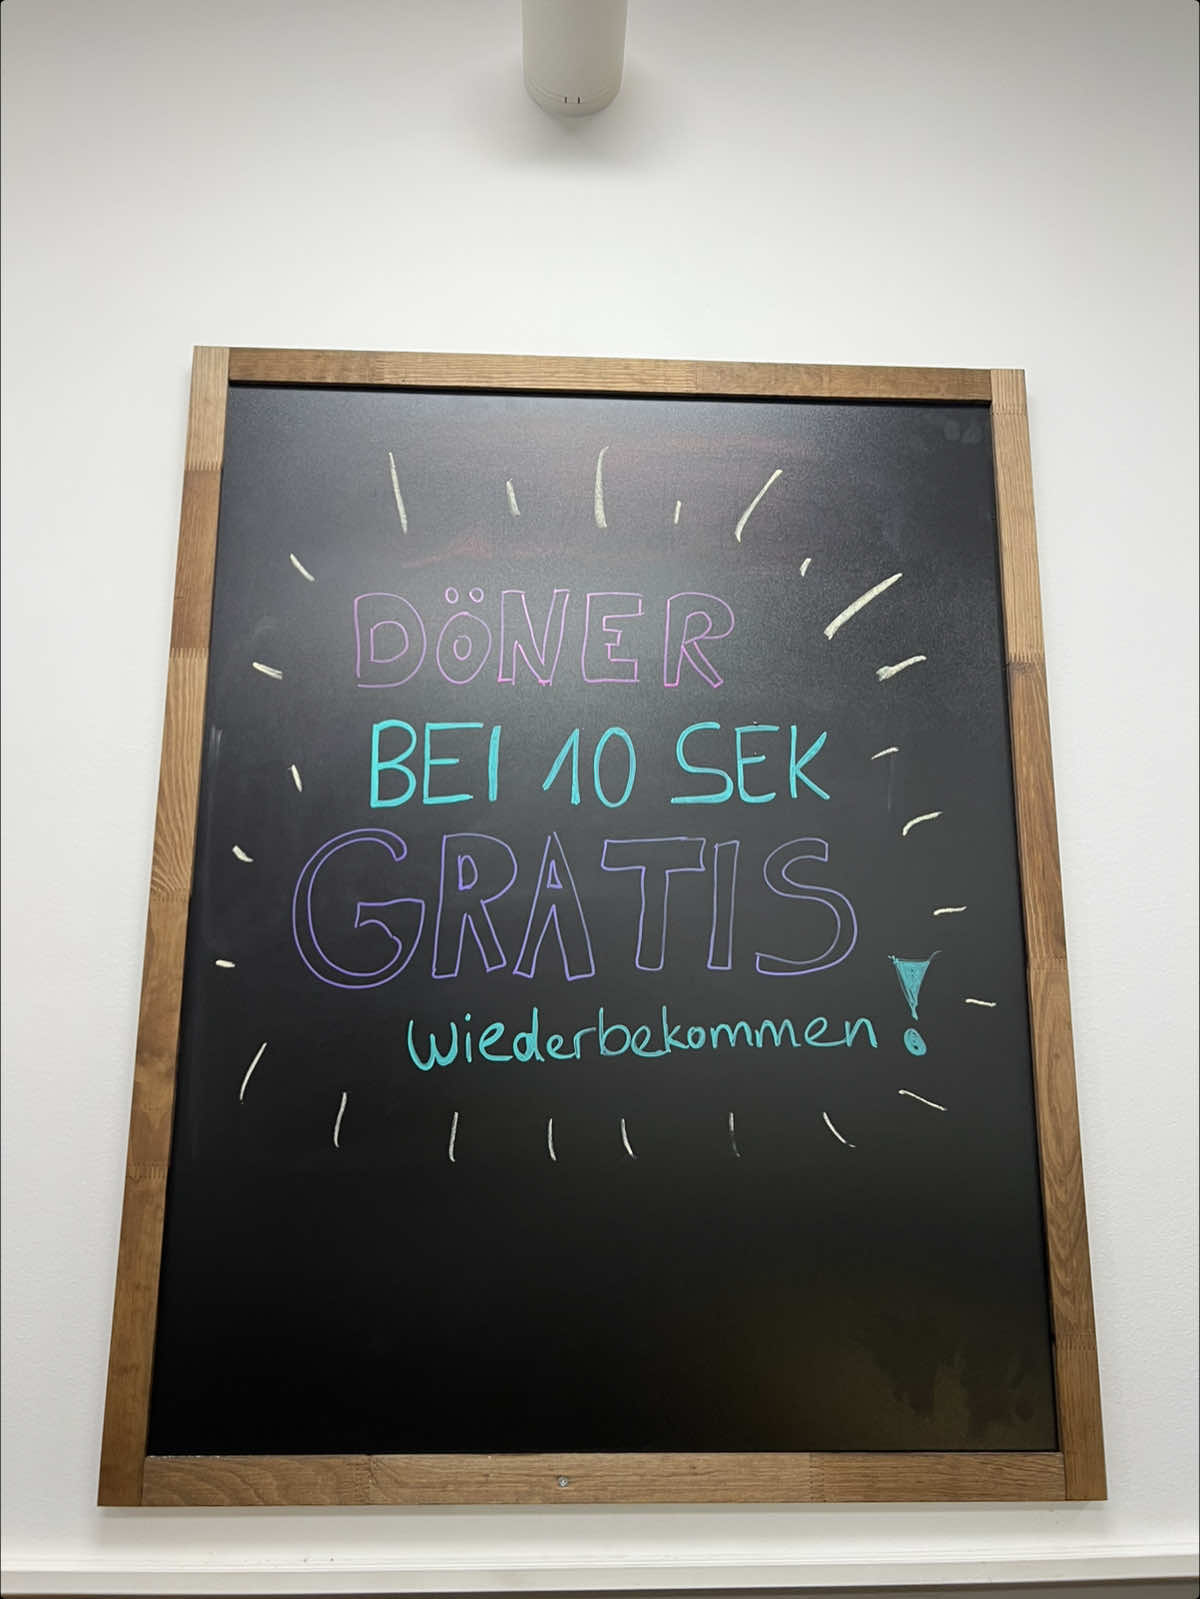 DÖNER
BEI 10 SEK
GRATIS
wiederbekommen!